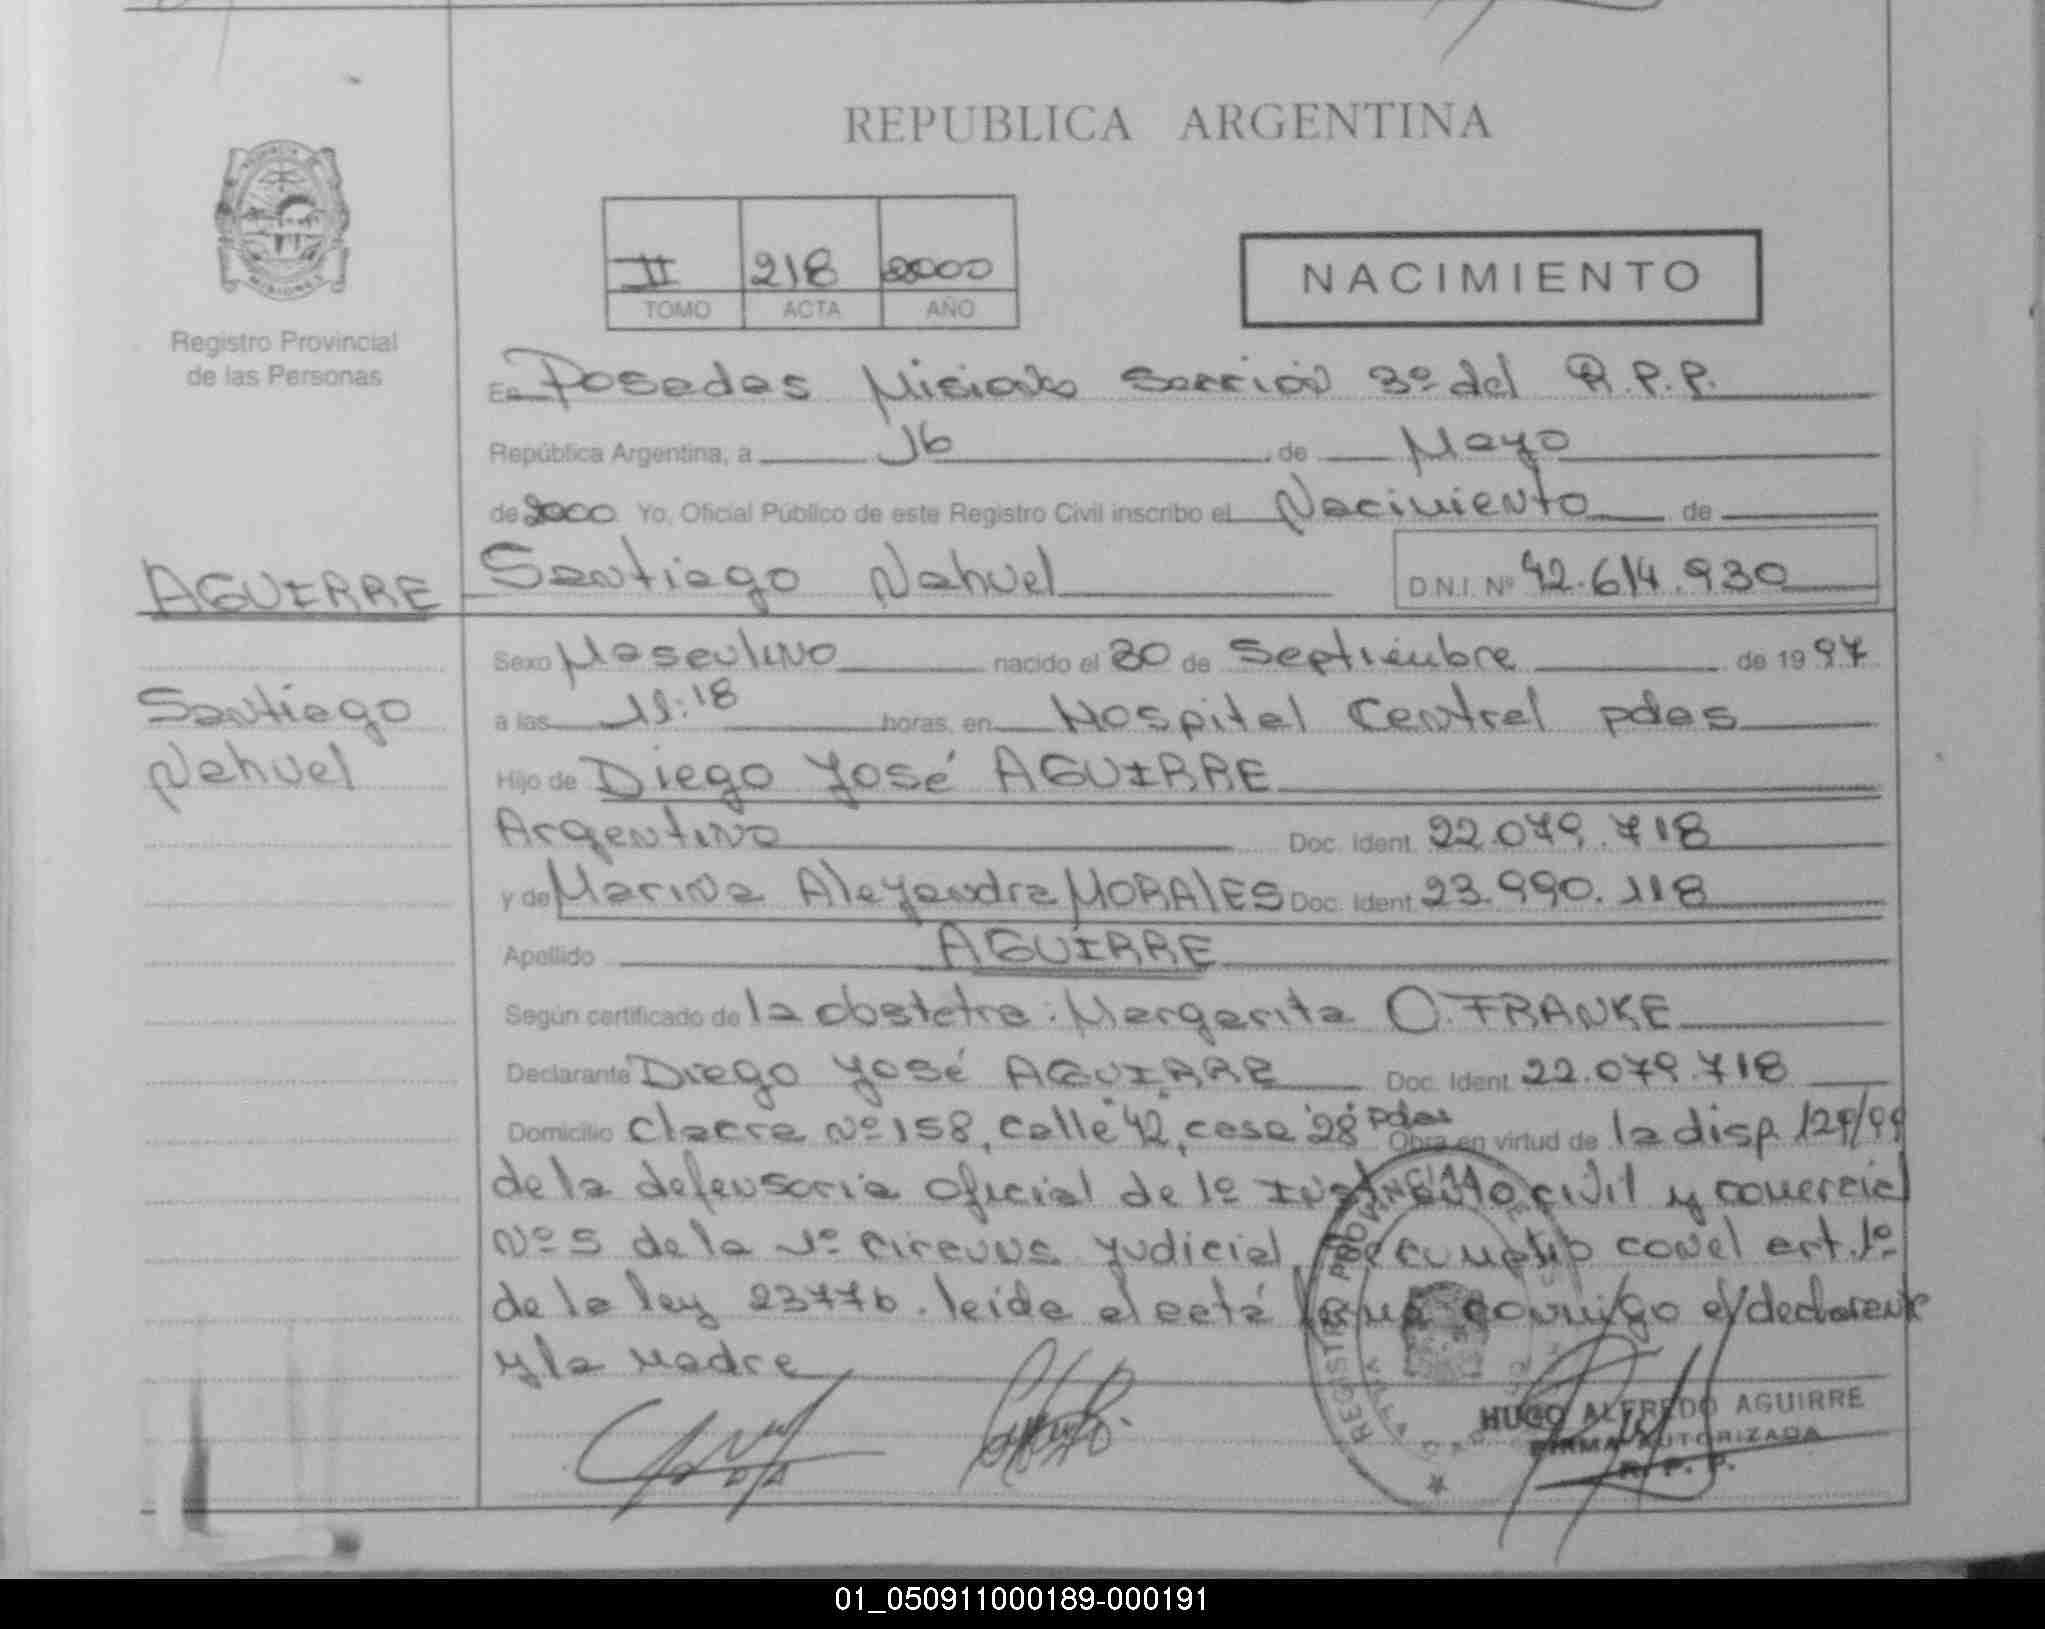 REPUBLICA ARGENTINA
II 218 2000
TOMO ACTA AÑO
NACIMIENTO
Registro Provincial
de las Personas
En Posadas Misiones sección 3º del R.P.P.
República Argentina, a 16 de Mayo
de 2000 Yo, Oficial Público de este Registro Civil inscribo el Nacimiento de
AGUIRRE Santiago Nahuel D.N.I. Nº 42.614.930
Sexo Masculino nacido el 30 de Septiembre de 1997
Santiago
Nahuel
a las 11:18 horas, en Hospital Central pdas
Hijo de Diego José AGUIRRE
Argentino Doc. Ident. 22.079.718
y de Marina Alejandra MORALES Doc. Ident. 23.990.118
Apellido AGUIRRE
Según certificado de la obstetra: Margarita O. FRANKE
Declarante Diego José AGUIRRE Doc. Ident. 22.079.718
Domicilio Chacra Nº 158, calle "42", casa "28" pdas Obra en virtud de la disp. 129/99
de la defensoria oficial de 1º civil y comercial
Nº 5 de la 1º circuns judicial, con el art. 1º
de la ley 23776. leida el acta firma conmigo el declarante
y la madre
REGISTRO PROVINCIAL DE
HUGO ALFREDO AGUIRRE
FIRMA AUTORIZADA
R. P. P.
01_050911000189-000191